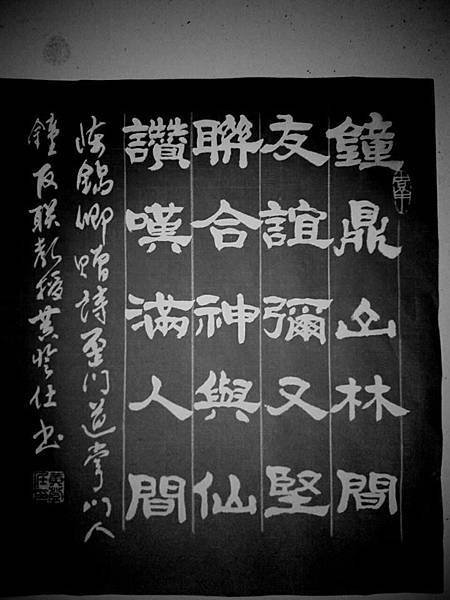 鐘鼎山林間
友誼彌又堅
聯合神與仙
讚嘆滿人間
錦卿贈詩门道掌门人
鐘友联教授黃仕书